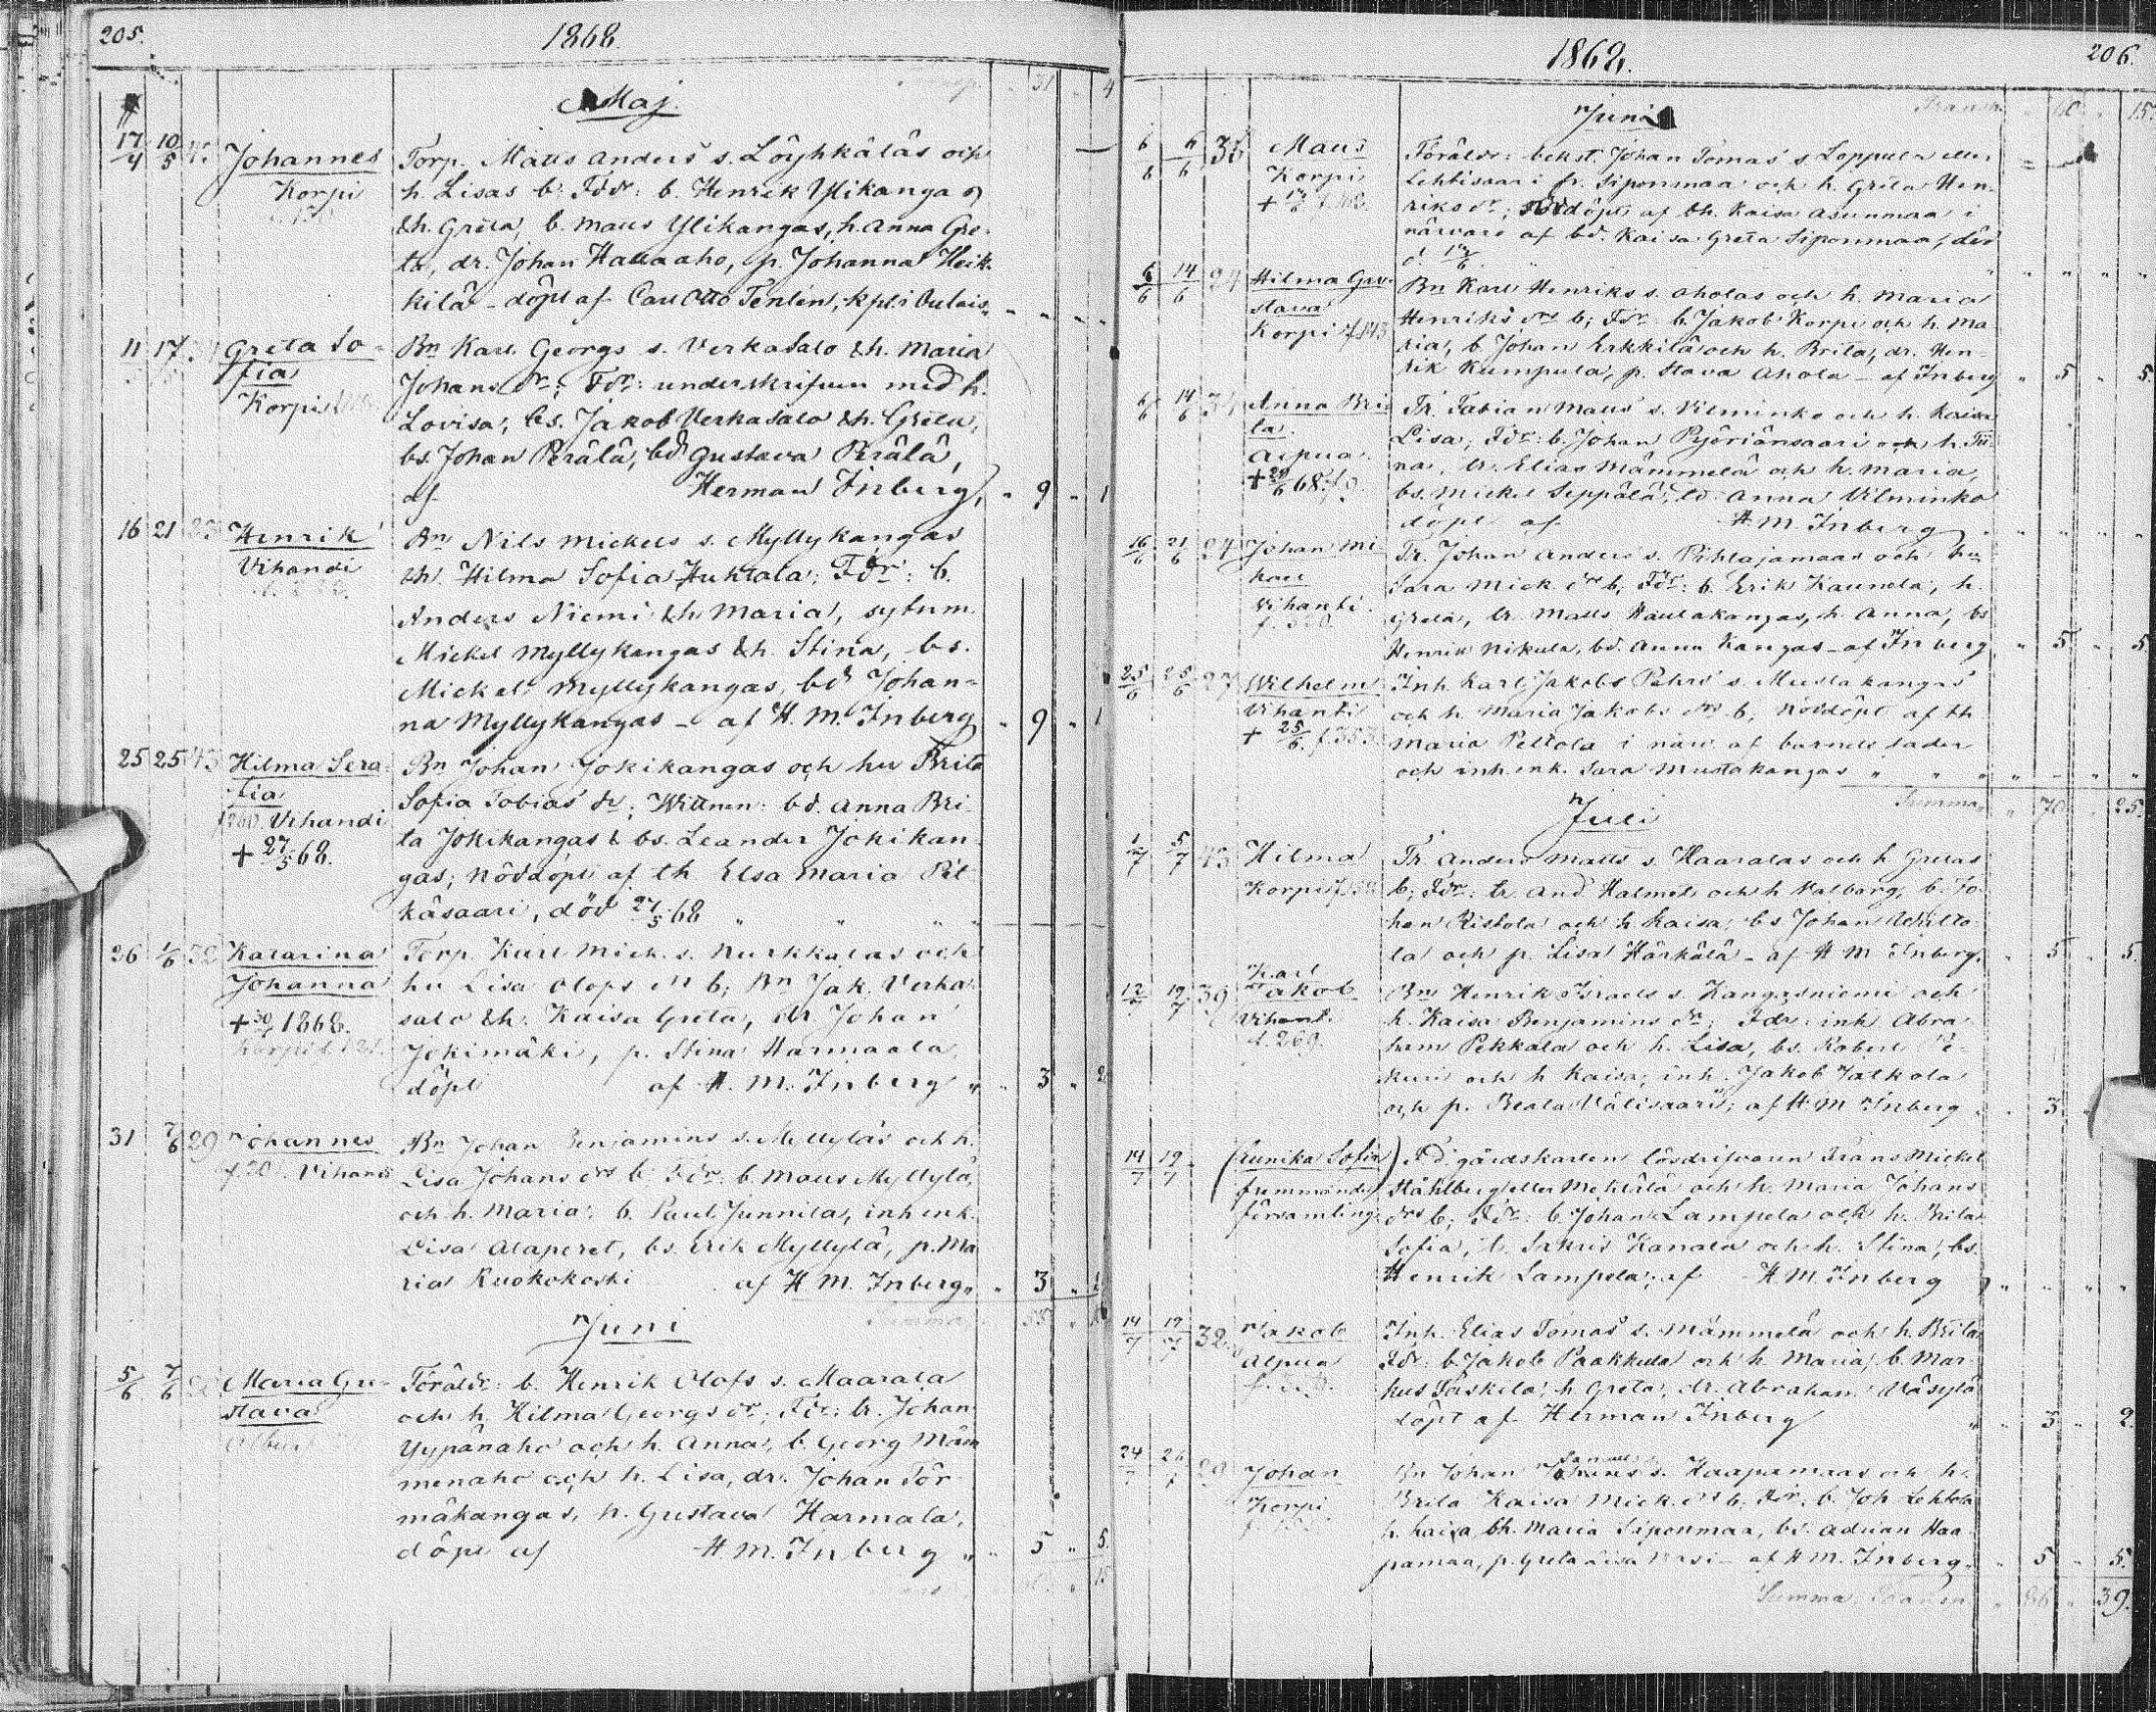 205.
1868.
Maj.
31 4
17/4 10/5 Johannes Torp. Matts Anders s. Löyhkäläs och
Korpi h. Lisas b; Fdr: b. Henrik Ylikangas
&h. Greta, b. Matts Ylikangas, h. Anna Gre-
ta, dr. Johan Hallaaho, p. Johanna Heik-
kilä - döpt af Carl Otto Tenlén, kpl. i Oulais
11 17 Greta So- Bn Karl Georgs s. Verkasalo &h. Maria
fia Johans dr; Fdr: underskrifven med h.
Korpi Lovisa, bs. Jakob Verkasalo &h. Greta,
bs. Johan Perälä, bd Gustava Perälä,
af Herman Inberg, 9 1
16 21 Henrik Bn Nils Mickels s. Myllykangas
Vihandi &h Hilma Sofia Huktala; Fdr: b.
Anders Niemi &h Maria, sytnm.
Mickel Myllykangas &h. Stina, bs.
Mickel Myllykangas, bd Johan-
na Myllykangas - af H. M. Inberg 9 1
25 25 43 Hilma Sera- Bn Johan Jokikangas och hu Brita
fia Sofia Tobias dr; Wittnen: bd. Anna Bri-
f260. Vihandi ta Jokikangas & bs. Leander Jokikan-
+ 27/5 68. gas; nöddöpt af th Elsa Maria Pit-
käsaari, död 27/5 68
26 1/6 32 Katarina Torp. Karl Mick. s. Nurkkalas och
Johanna hu Lisa Olofs drs b; Bn Jak. Verka-
+ 30/ 1868. salo &h. Kaisa Greta, dr Johan
Korpi Jokimäki, p. Stina Harmaala
döpt af H. M. Inberg 3 2
31 7/6 29 Johannes Bn Johan Benjamins s. Myllyläs och h.
Vihandi Lisa Johans drs b; Fdr: b. Matts Myllylä,
och h. Maria, b. Paul Junnila, inh enk.
Lisa Alaperet, bs. Erik Myllylä, p. Ma-
ria Ruokokoski af H M. Inberg 3 1
Summa 55
Juni
5/6 7/6 Maria Gu- Föräldr: b. Henrik Olofs s. Maarala
stava och h. Hilma Georgs dr; Fdr: b. Johan
Yypänaho och h. Anna, b. Georg Mäm-
menaho och h. Lisa, dr. Johan Tör-
mäkangas, p. Gustava Harmala,
döpt af H. M. Inberg 5 5.
15
1868.
206.
Juni
Transp. 60 15.
6/6 6/6 Matts Föräldr: bekst. Johan Tomas s Leppula eller
Korpi Lehtisaari fr. Siponmaa och h. Greta Hen-
riks dr; nöddöpt af bh. Kaisa Asunmaa i
närvaro af bd. Kaisa Greta Siponmaa, död
6/6 14/6 24 Hilma Gu- Bn Karl Henriks s. Aholas och h. Maria
stava Henriks drs b; Fdr: b. Jakob Korpi och h. Ma-
Korpi f 143 ria, b. Johan Erkkilä och h. Brita, dr. Hen-
rik Kumpula, p. Stava Ahola - af Inberg 5 5
6/6 14/6 Anna Bri- Tr. Fabian Matts s. Vilminko och h. Kaisa
ta. Lisa; Fdr: b. Johan Pyöriänsaari och h. Tii-
Alpua na, tr. Elias Mämmelä och h. Maria,
+ 29/6 68. bs. Mickel Seppälä, bd. Anna Vilminko
döpt af H M. Inberg
16/6 21/6 24 Johan Mi- Tr. Johan Anders s. Pihlajamaas och hu
kael Sara Mick drs b; Fdr: b. Erik Kaunela, h.
Vihanti Greta, tr. Matts Hautakangas, h. Anna, bs
Henrik Nikula, bd. Anna Kangas - af Inberg 5 5
25/6 25/6 27 Wilhelm Inh Karl Jakobs Pehrs s. Mustakangas
Vihanti och h Maria Jakobs drs b, nöddöpt af th
+ 25/6 Maria Peltola i närv. af barnets fader
och inh. enk. Sara Mustakangas
Summa 70 25.
Juli
1/7 5/7 43 Hilma Tr Anders Matts s. Haaralas och h Gretas
Korpi b; Fdr: tr. And Halmet och h Valborg, b. Jo-
han Ristola och h Kaisa, bs Johan
la och p. Lisa Härkälä - af H M Inberg. 5 5
12/7 19/7 39 Karl Jakob Bn Henrik Israels s. Kangasniemi och
Vihanti h. Kaisa Benjamins dr; Fdr: inh Abra-
f. 269 ham Pekkala och h. Lisa, bs. Robert Pe-
kuri och h Kaisa, inh. Jakob Jalkola
och p. Beata Välisaari; af H M Inberg 3
14/7 19/7 (Eunika Sofia) F.d. gårdskarlen lösdrifvaren Frans Mickel
frammande Ståhlberg eller Mehtälä och h. Maria Johans
församling drs b; Fdr: b Johan Lampela och h. Brita
Sofia, b. Sakris Kanala och h. Stina, bs.
Henrik Lampela; af H M Inberg
14/7 19/7 32 Jakob Inh. Elias Tomas s. Mämmelä och h. Brita
Alpua Fdr: b. Jakob Paakkula och h Maria, b. Mar-
kus Taskila, h Greta, dr. Abraham Väsylä
döpt af Herman Inberg 3 2.
24/7 26/7 29 Johan Bn Johan Samuels s. Haapamaas och h.
Korpi Brita Kaisa Mick. drs b; Fdr. b. Joh Lehtola
h. Kaisa, bh. Maria Siponmaa, bs. Adrian Haa-
pamaa, p. Greta Lisa - af H M. Inberg 5 5.
Summa Transp 86 39.